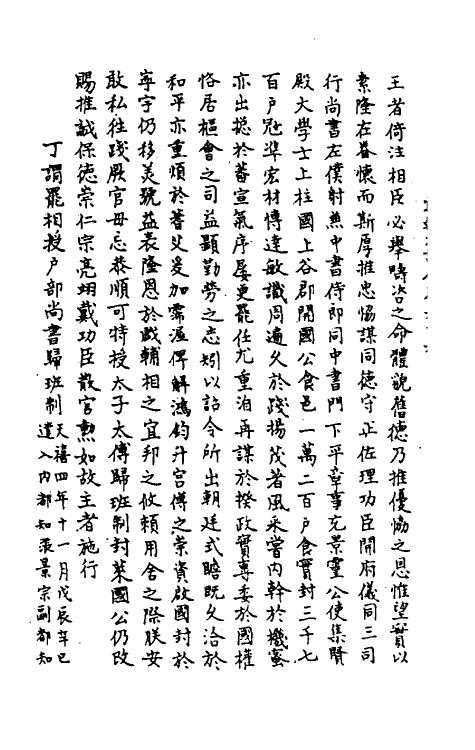 王者倚注相臣必舉疇咨之命體貌舊德乃推優協之恩惟望實以
素隆在眷懷而斯厚推忠協謀同德守正佐理功臣開府儀同三司
行尚書左僕射兼中書侍郎同中書門下平章事充景靈公使集賢
殿大學士上柱國上谷郡開國公食邑一萬二百戶食實封三千七
百戶寇準宏材博達敏識周遍久於踐揚茂著風采嘗內幹於機密
亦出揔於蕃宣氣序屢更罷任尤重洎再謀於揆政實專委於國權
恪居樞會之司益顯勤勞之志矧以詔令所出朝廷式瞻既久洽於
和平亦重煩於耆艾爰加霈渥俾解鴻鈞升宮傅之崇資啟國封於
寧宇仍移美號益表隆恩於戲輔相之宜邦之攸賴用舍之際朕安
敢私往踐厥官毋忘恭順可特授太子太傅歸班制封萊國公仍改
賜推誠保德崇仁宗亮翊戴功臣散官勳如故主者施行
丁謂罷相授戶部尚書歸班制
天禧四年十一月戊辰年已
遣入內都知張景宗副都知